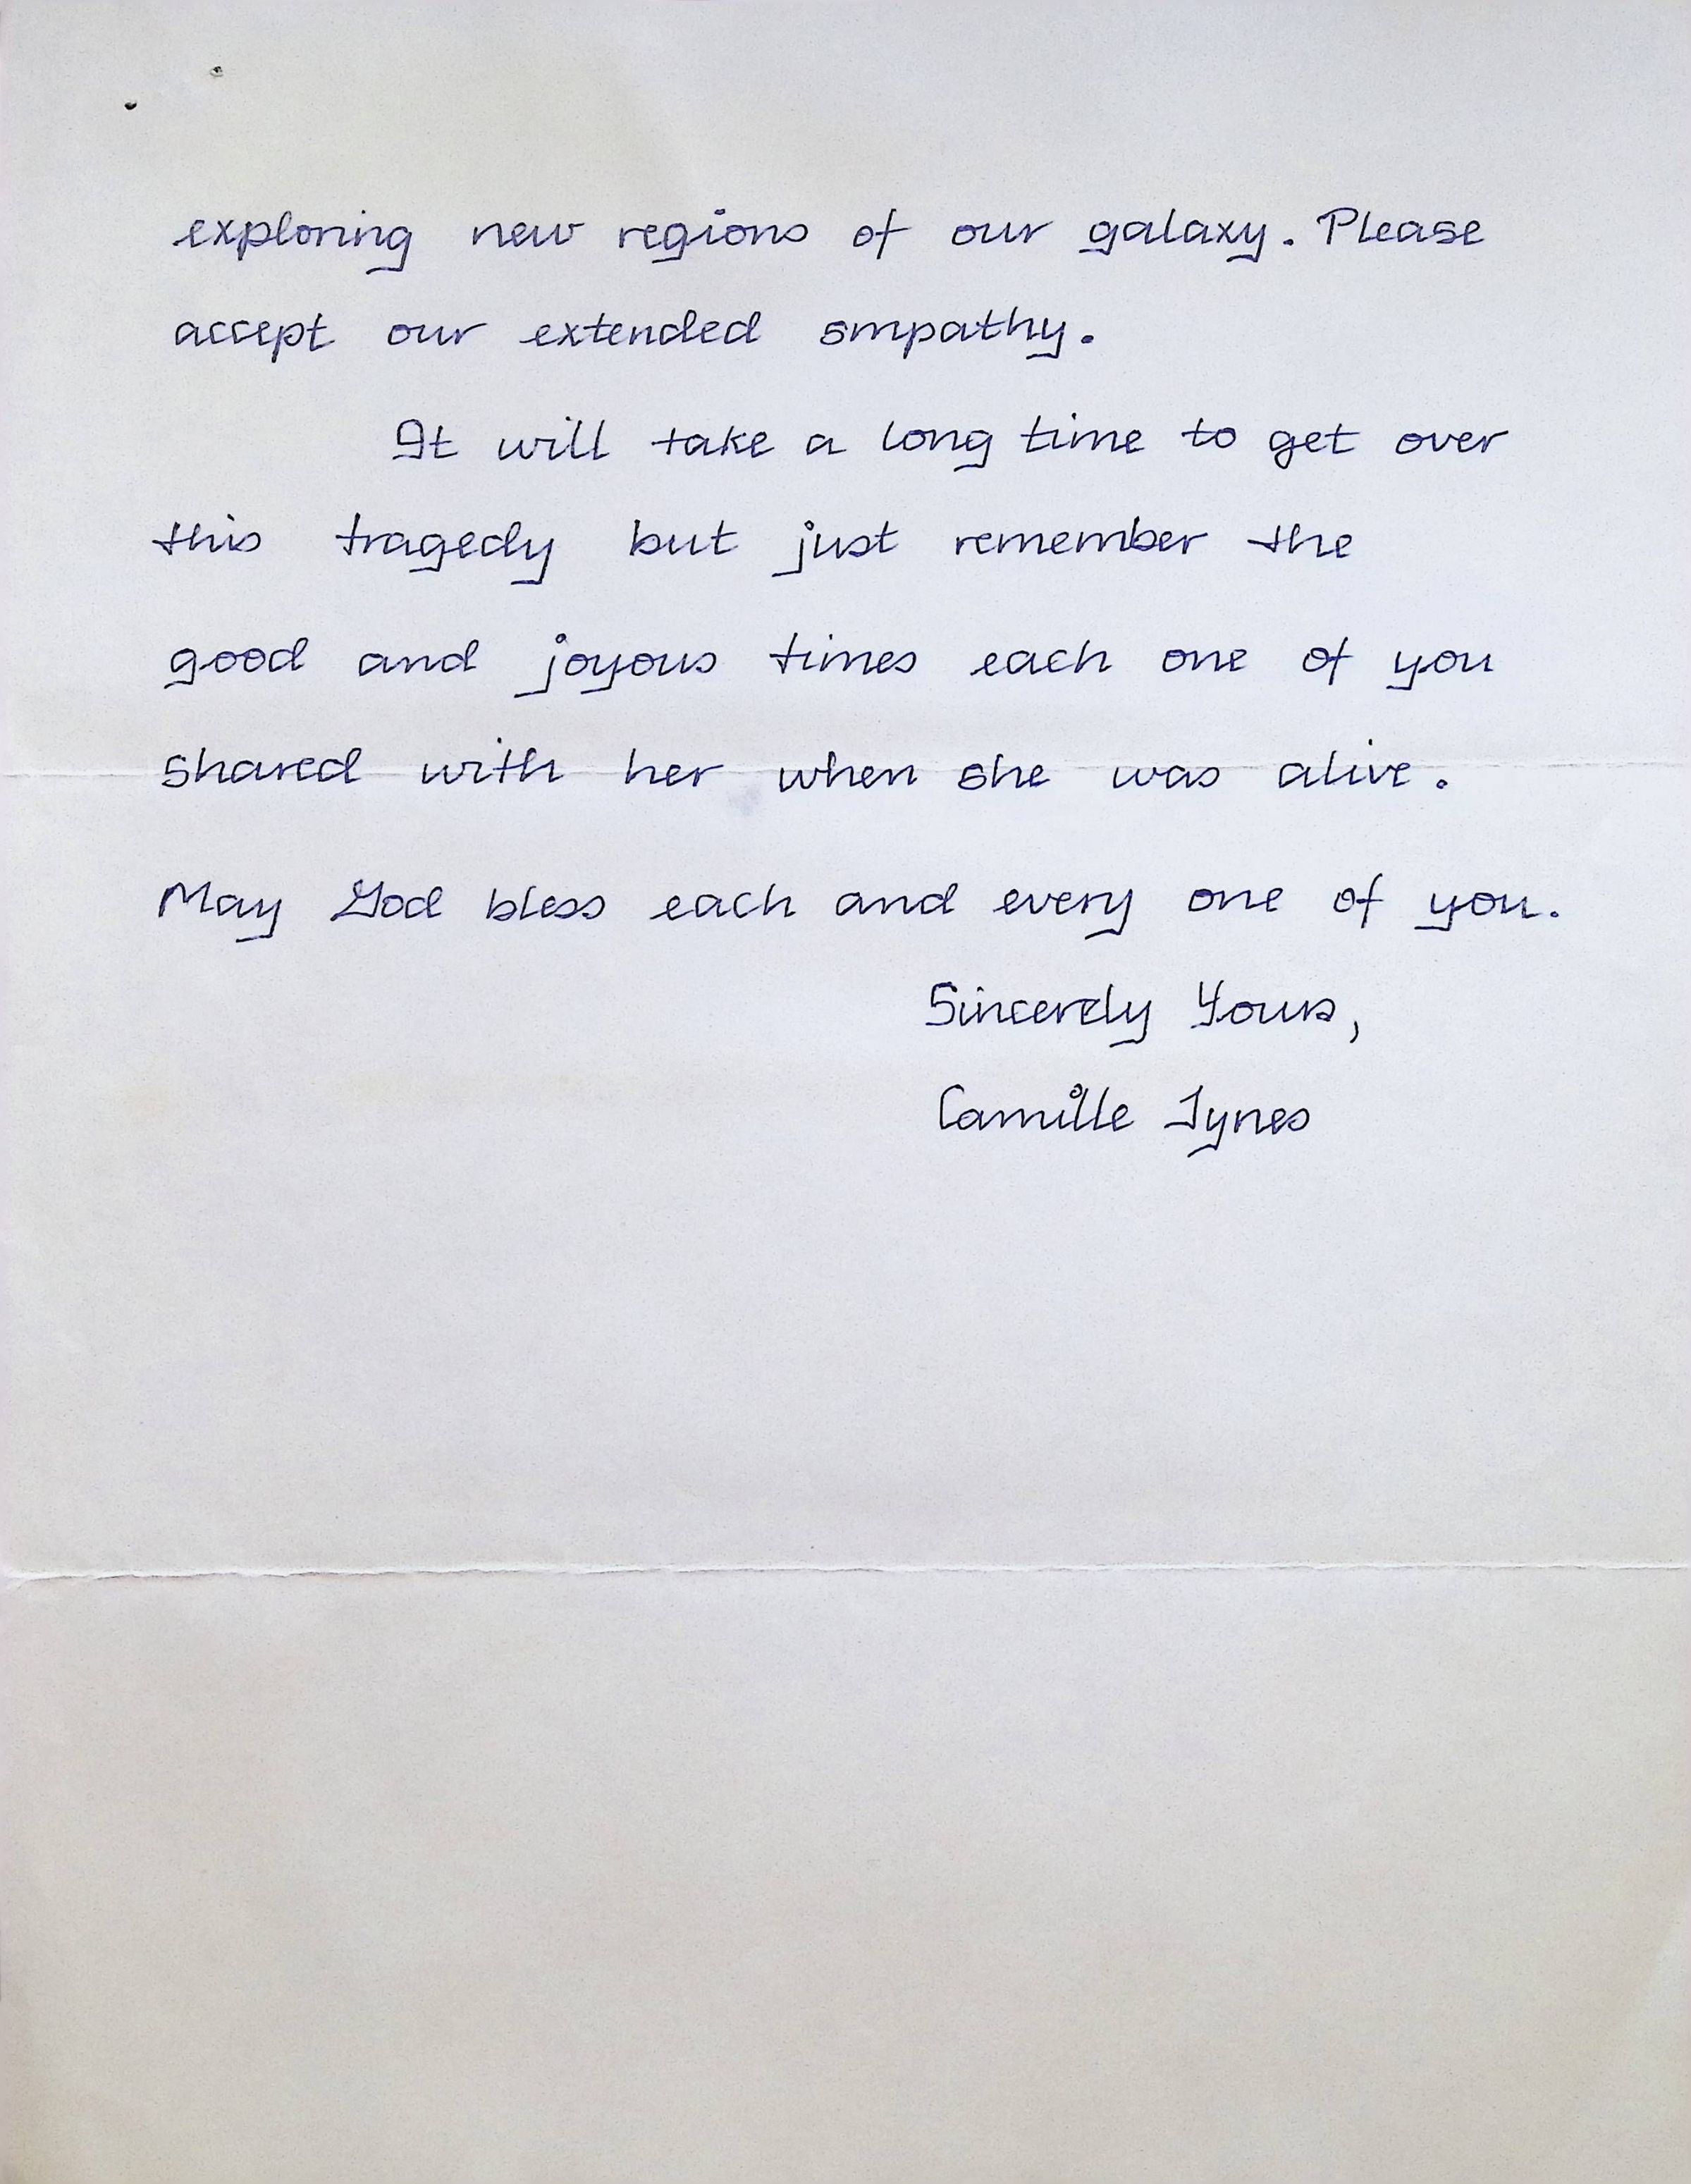 exploring new regions of our galaxy. Please
accept our extended smpathy.
It will take a long time to get over
this tragedy but just remember the
good and joyous times each one of you
shared with her when she was alive.
May God bless each and every one of you.
Sincerely Yours,
Camille Tynes